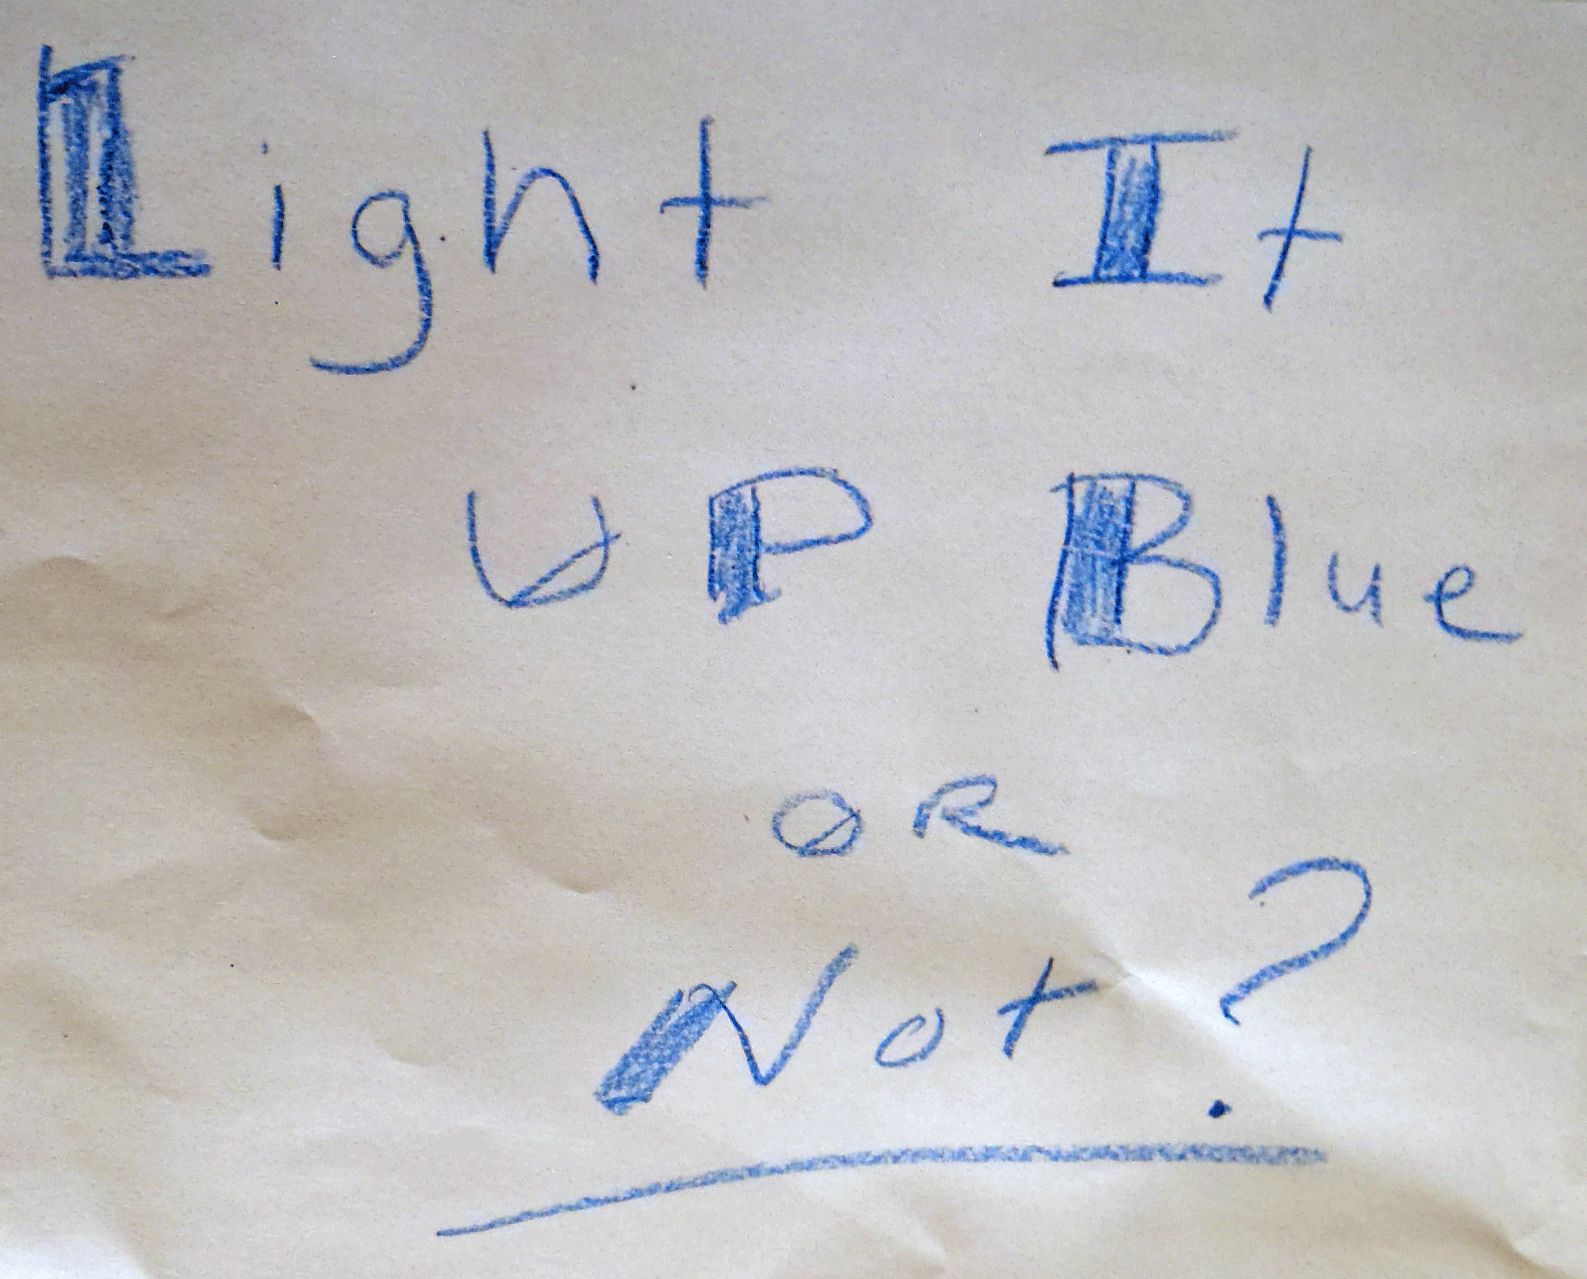 Light It
UP Blue
OR
Not?